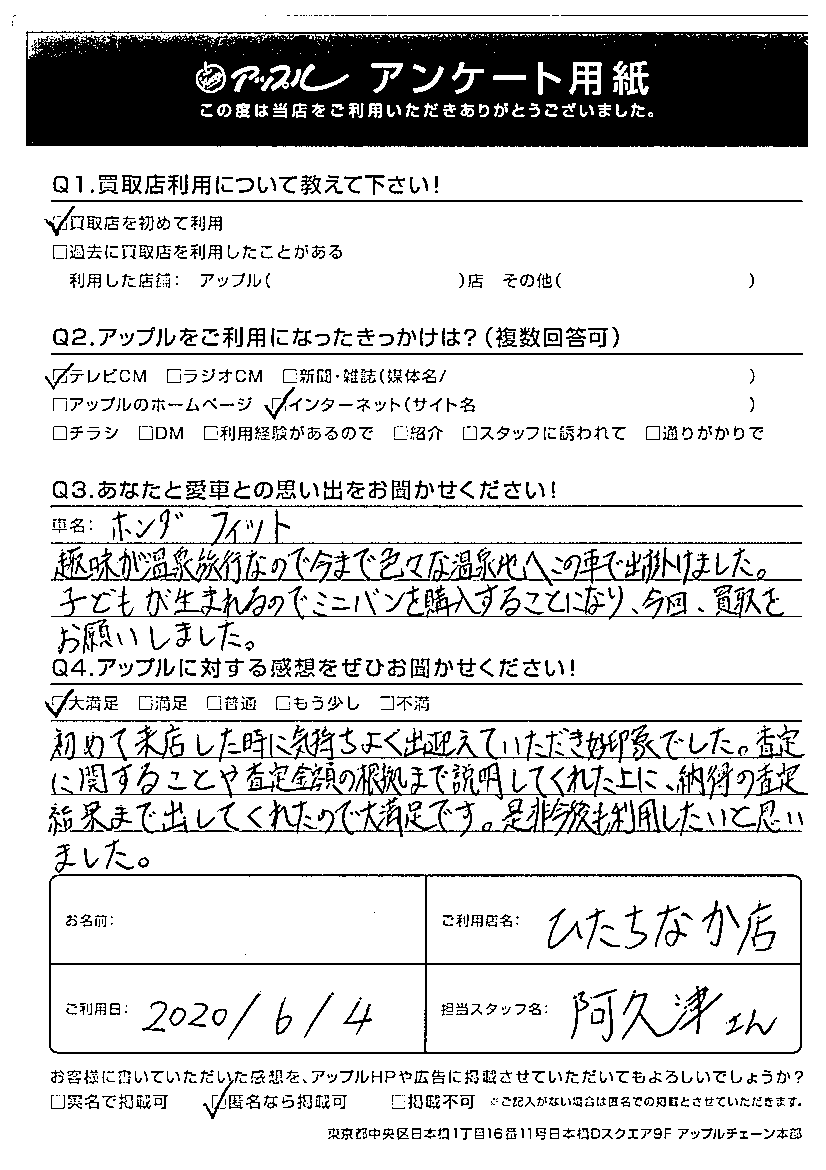 アップル アンケート用紙
この度は当店をご利用いただきありがとうございました。
Q1.買取店利用について教えて下さい!
☑買取店を初めて利用
□過去に買取店を利用したことがある
利用した店舗: アップル( )店 その他( )
Q2.アップルをご利用になったきっかけは?(複数回答可)
☑テレビCM □ラジオCM □新聞・雑誌(媒体名/ )
□アップルのホームページ ☑インターネット(サイト名 )
□チラシ □DM □利用経験があるので □紹介 □スタッフに誘われて □通りがかりで
Q3.あなたと愛車との思い出をお聞かせください!
車名: ホンダ フィット
趣味が温泉旅行なので今まで色々な温泉地へこの車で出掛けました。
子どもが生まれるのでミニバンを購入することになり、今回、買取を
お願いしました。
Q4.アップルに対する感想をぜひお聞かせください!
☑大満足 □満足 □普通 □もう少し □不満
初めて来店した時に気持ちよく出迎えていただき好印象でした。査定
に関することや査定金額の根拠まで説明してくれた上に、納得の査定
結果まで出してくれたので大満足です。是非今後も利用したいと思い
ました。
お名前:
ご利用店名: ひたちなか店
ご利用日: 2020/6/4
担当スタッフ名: 阿久津さん
お客様に書いていただいた感想を、アップルHPや広告に掲載させていただいてもよろしいでしょうか?
□実名で掲載可 ☑匿名なら掲載可 □掲載不可 ※ご記入がない場合は匿名での掲載とさせていただきます。
東京都中央区日本橋1丁目16番11号日本橋Dスクエア9F アップルチェーン本部